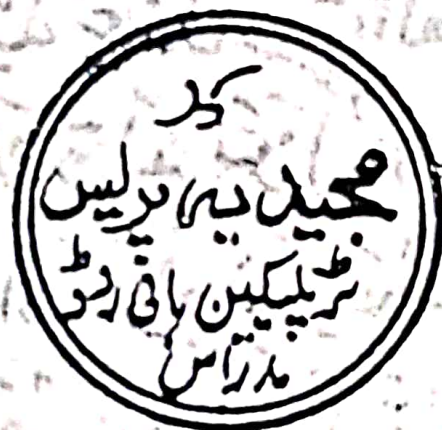 مجیدیہ پریس
ٹریپلیکین ہائی روڈ
مدراس